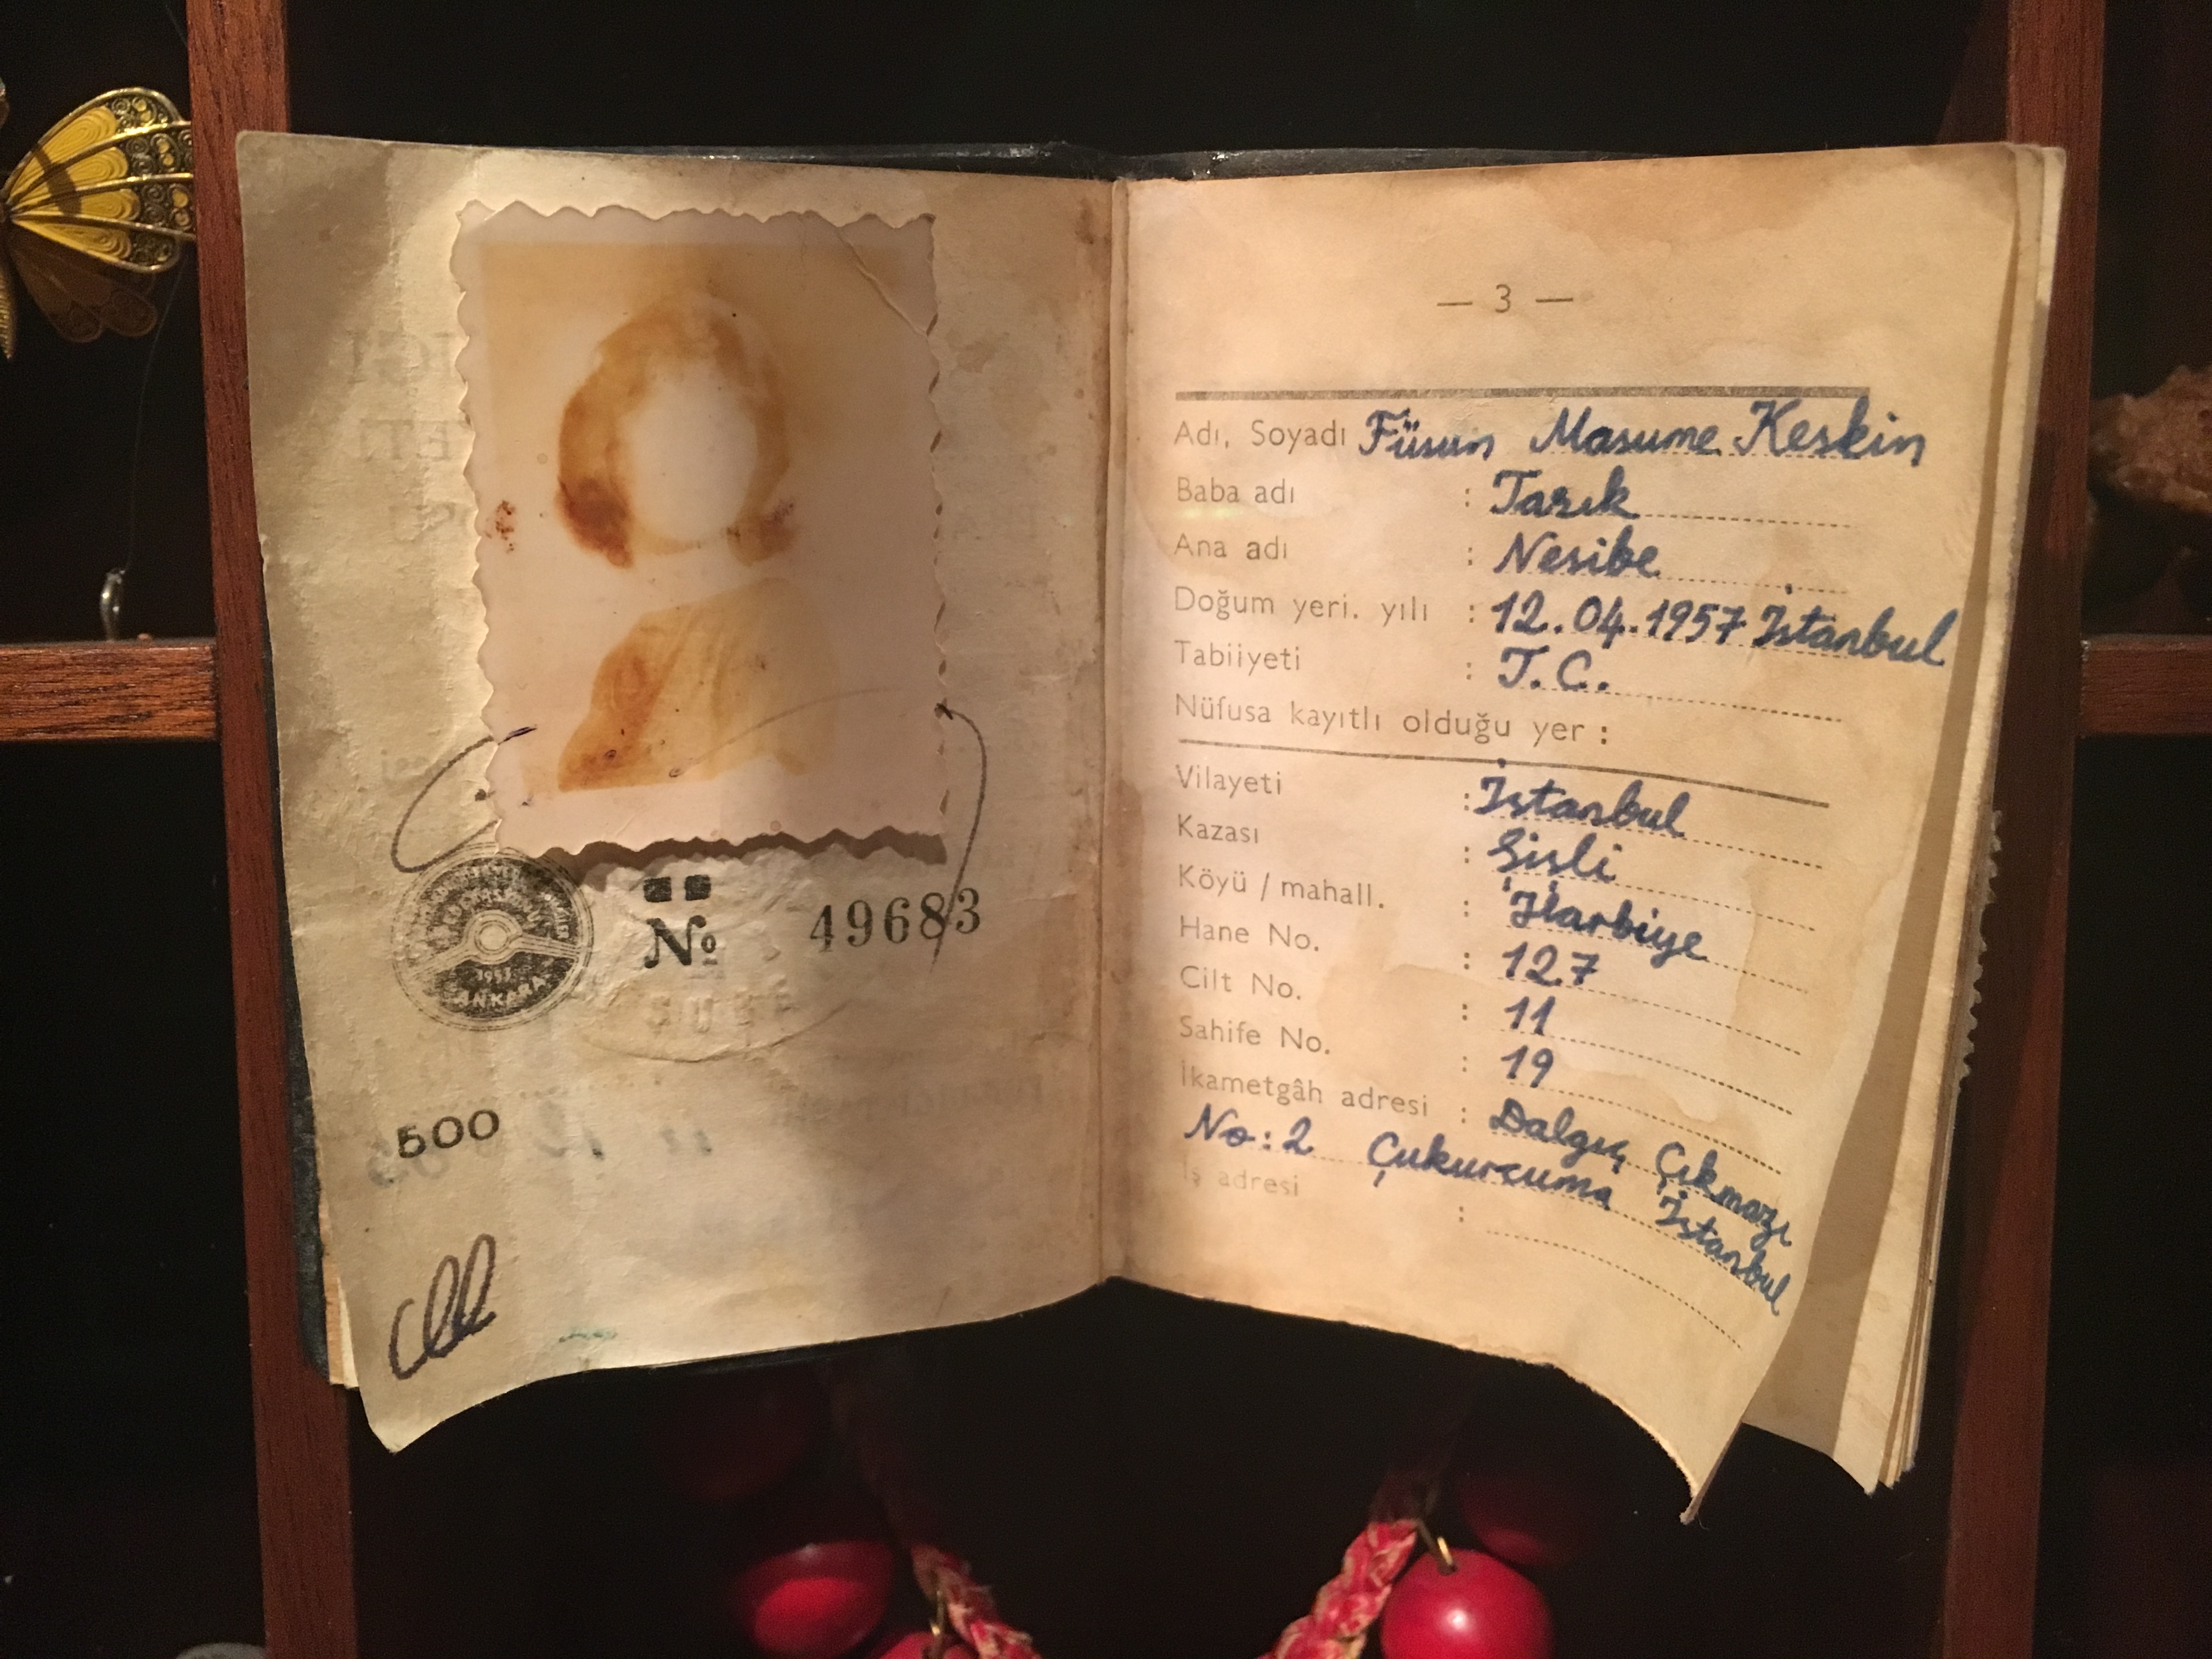 No 49683
1953
ANKARA
500
— 3 —
Adı, Soyadı Füsun Masume Keskin
Baba adı : Tarık
Ana adı : Nesibe
Doğum yeri. yılı : 12.04.1957 İstanbul
Tabiiyeti : T.C.
Nüfusa kayıtlı olduğu yer :
Vilayeti : İstanbul
Kazası : Şişli
Köyü / mahall. : Harbiye
Hane No. : 127
Cilt No. : 11
Sahife No. : 19
İkametgâh adresi : Dalgıç Çıkmazı
No:2 Çukurcuma İstanbul
İş adresi :